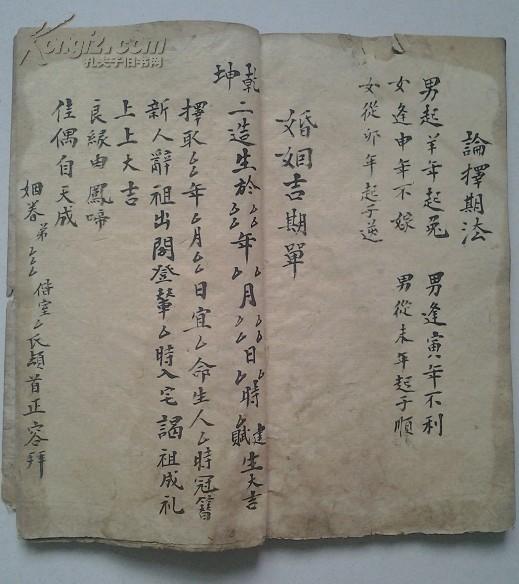 論擇期法
男起羊年起兎 男逢寅年不利
女逢申年不嫁 男從未年起子順
女從卯年起子逆
婚姻吉期單
乾坤二造生於厶厶年厶厶月厶厶日厶厶時建生大吉
擇取厶厶年厶月厶日宜厶命生人厶時冠簪
新人辭祖出閣登輦厶時入宅謁祖成礼
上上大吉
良縁由鳳啼
佳偶自天成
姻眷弟厶厶厶偕室厶氏頴首正容拜
Kongfz.com
孔夫子旧书网